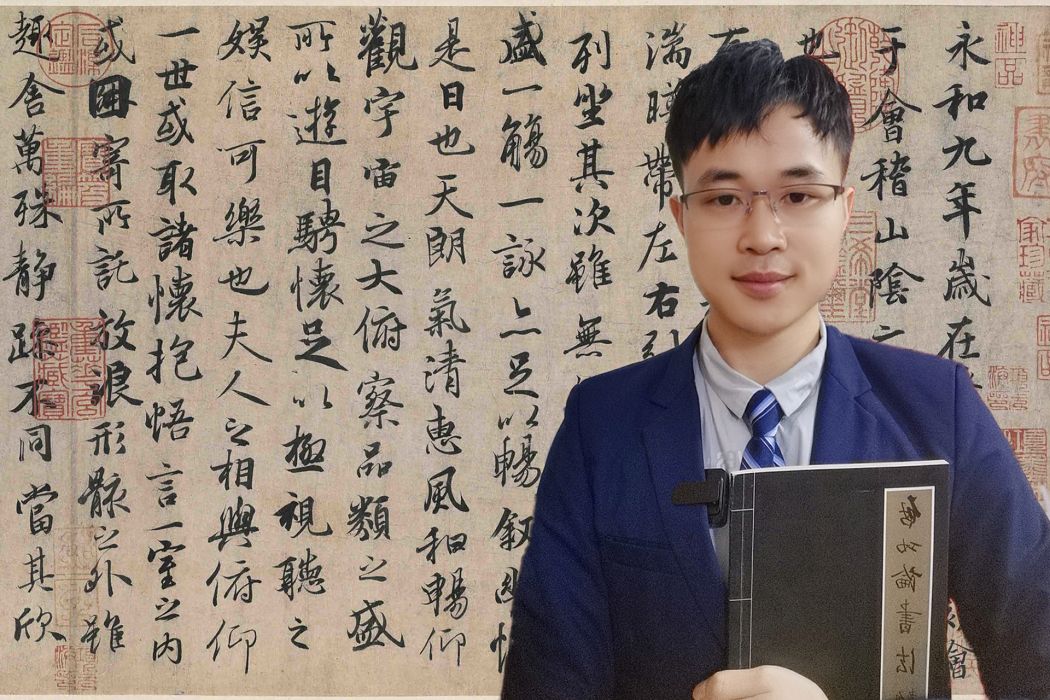 神品
永和九年歲在
會
于會稽山陰之
也
湍暎帶左右引
列坐其次雖無
盛一觴一詠亦足以暢敘幽情
是日也天朗氣清惠風和暢仰
觀宇宙之大俯察品類之盛
所以遊目騁懷足以極視聽之
娛信可樂也夫人之相與俯仰
一世或取諸懷抱悟言一室之內
或因寄所託放浪形骸之外雖
趣舍萬殊靜躁不同當其欣
啟功論書法